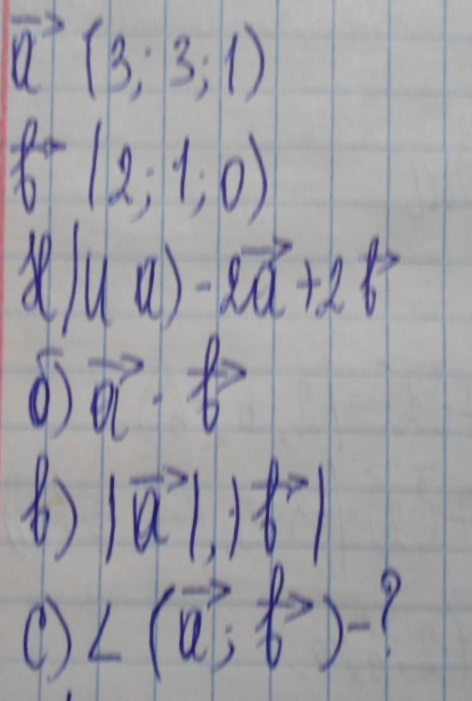 a⃗ (3; 3; 1)
b⃗ (2; 1; 0)
Н/и а) -2a⃗ + 2b⃗
б) a⃗ · b⃗
в) |a⃗|, |b⃗|
с) ∠ (a⃗; b⃗) - ?